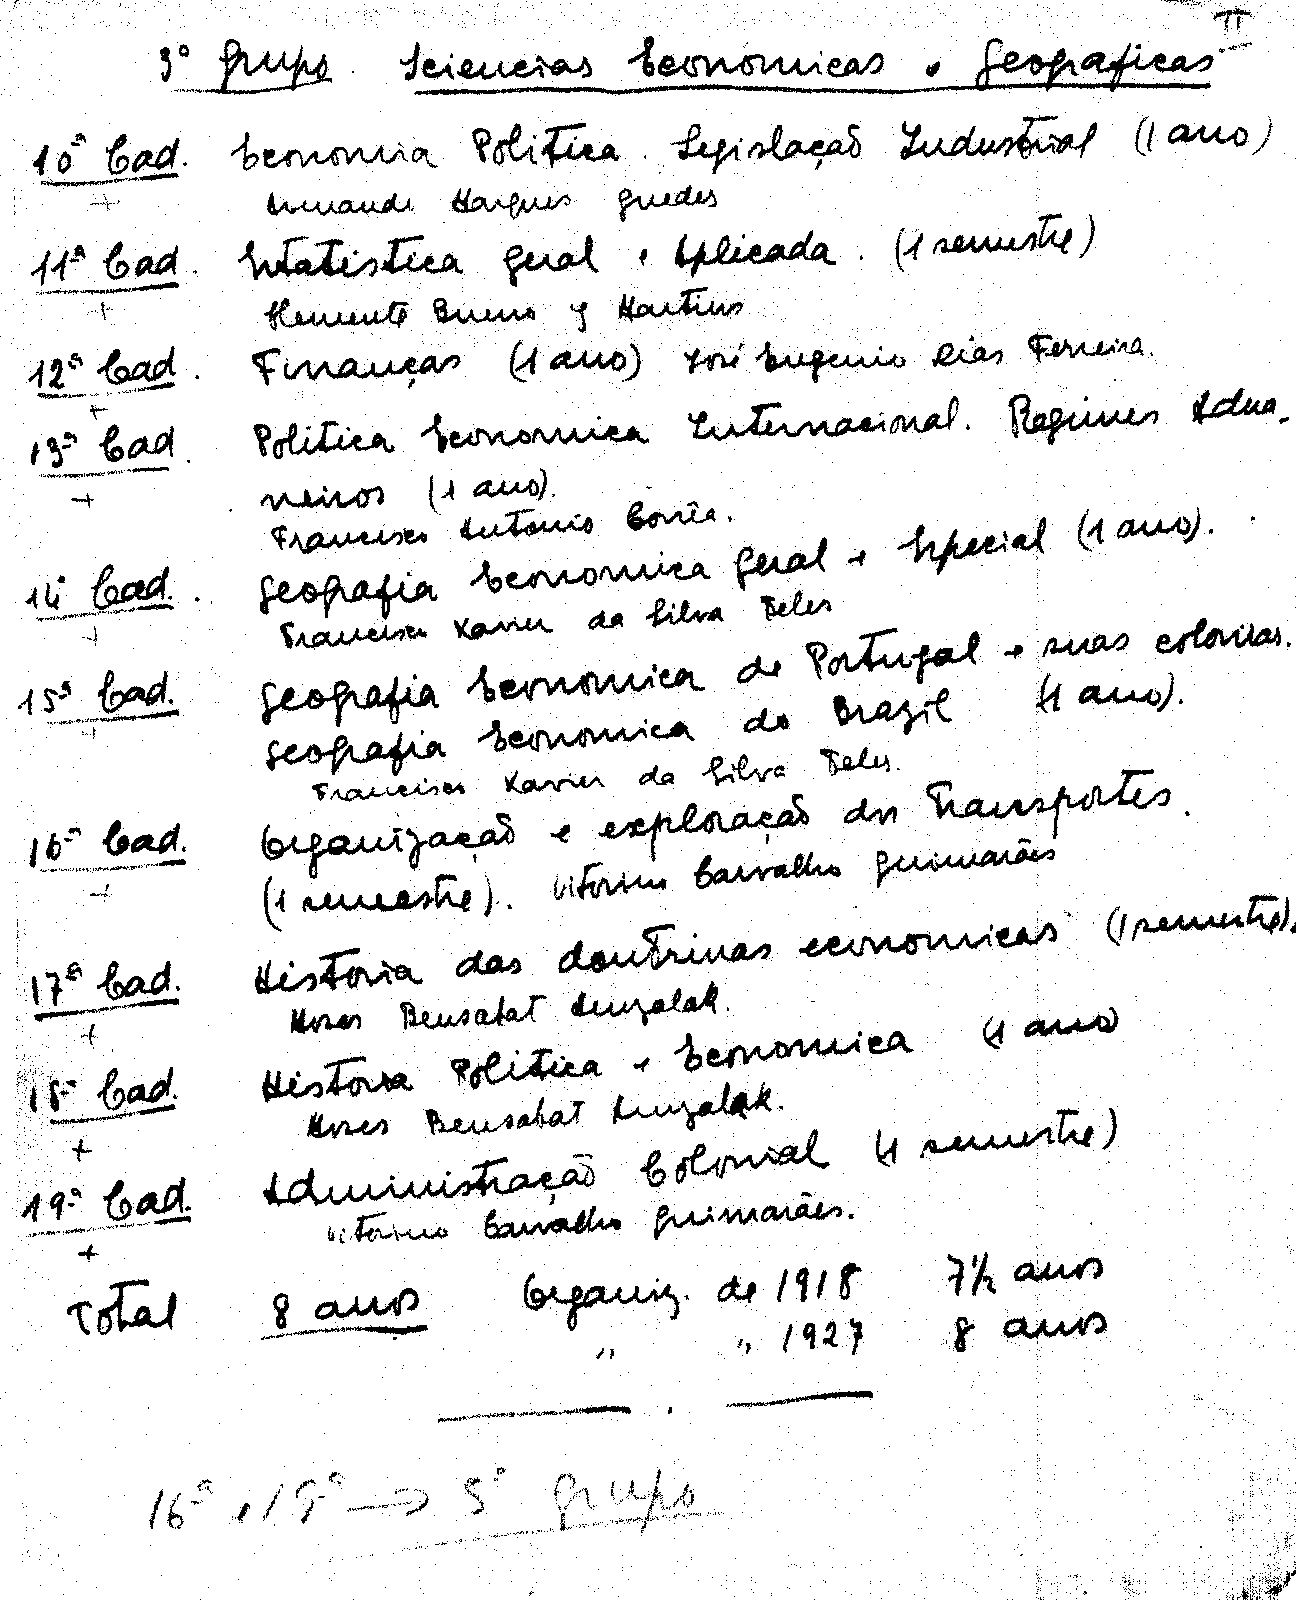 II
3º Grupo. Sciencias Economicas e Geograficas
10ª Cad. Economia Politica. Legislação Industrial (1 ano)
+ Armando Marques Guedes
11ª Cad. Estatistica Geral e Aplicada. (1 semestre)
+ Clemente Bueno y Martins
12ª Cad. Finanças (1 ano) José Eugenio Dias Ferreira.
+
13ª Cad. Politica Economica Internacional. Regimes Adua-
+ neiros (1 ano).
Francisco Antonio Corrêa.
14ª Cad. Geografia Economica Geral e Especial (1 ano).
+ Francisco Xavier da Silva Teles
15ª Cad. Geografia Economica de Portugal e suas colonias.
+ Geografia Economica do Brazil (1 ano).
Francisco Xavier da Silva Teles.
16ª Cad. Organização e exploração dos Transportes.
+ (1 semestre). Vitorino Carvalho Guimarães
17ª Cad. Historia das doutrinas economicas (1 semestre).
+ Moses Bensabat Amzalak.
18ª Cad. Historia Politica e Economica (1 ano
+ Moses Bensabat Amzalak.
19ª Cad. Administração Colonial (1 semestre)
+ Vitorino Carvalho Guimarães.
Total 8 anos Organiz. de 1918 7 1/2 anos
" " 1927 8 anos
16ª e 19ª → 5º grupo